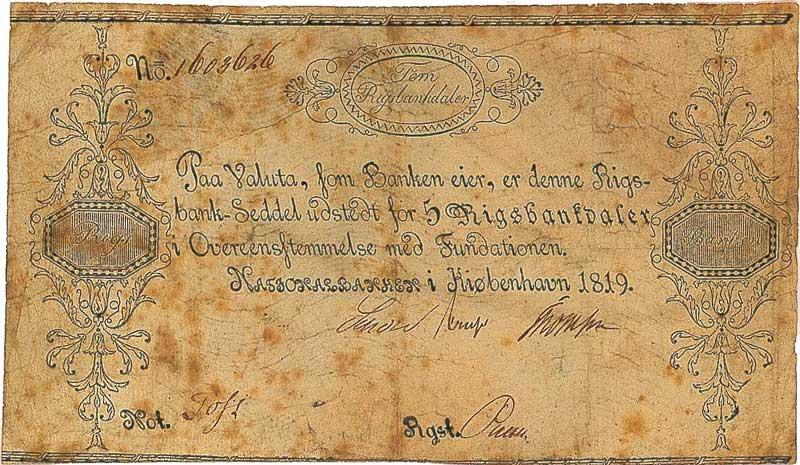 No. 1603626
Fem
Rigsbankdaler
Paa Valuta, som Banken eier, er denne Rigs-
bank-Seddel udstedt for 5 Rigsbankdaler
i Overeensstemmelse med Fundationen.
NATIONALBANKEN i Kiøbenhavn 1819.
Rigs
Banken
Not.
Rgst.